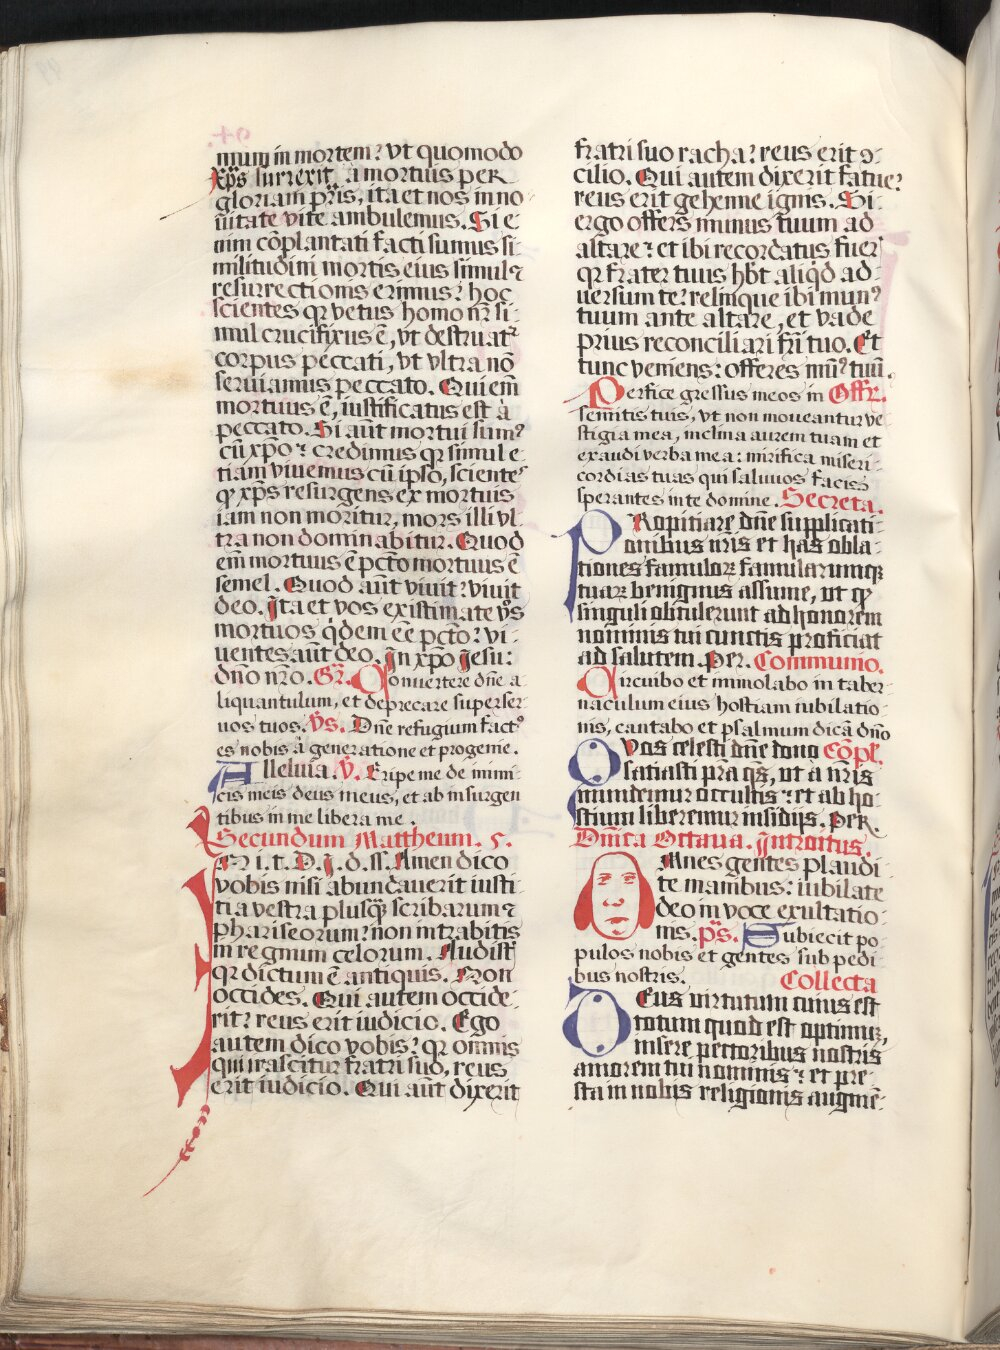 mum in mortem? vt quomodo
xp̄s surrexit a mortuis per
gloriam pr̄is, ita et nos in no-
uitate vite ambulemus. Si e-
nim cōplantati facti sumus si-
militudini mortis eius simul ⁊
resurrectionis erimus? hoc
scientes qꝛ vetus homo nr̄ si-
mul crucifixus ē, vt destruat᷑
corpus peccati, vt vltra nō
seruiamus peccato. Qui em̄
mortuus ē, iustificatus est à
peccato. Si aūt mortui sumꝰ
cū xp̄o ⁊ credimus qꝛ simul e-
tiam viuemus cū ipso, scientes
ꝙ xp̄s resurgens ex mortuis
iam non moritur, mors illi vl-
tra non dominabitur. Quod
em̄ mortuus ē pctō mortuus ē
semel. Quod aūt viuit? viuit
deo. Ita et vos existimate vōs
mortuos q̇dem eē pctō? vi-
uentes aūt deo. In xp̄o Jesu:
dn̄o nr̄o. Gr̄. Conuertere dn̄e a-
liquantulum, et deprecare super ser-
uos tuos. V̄s. Dn̄e refugium factꝰ
es nobis à generatione et progenie.
Alleluia. V̄. Eripe me de inimi-
cis meis deus meus, et ab insurgen
tibus in me libera me.
Secundum Mattheum. 5.
IN i. t. D. J. d. ss. Amen dico
vobis nisi abundauerit iusti-
tia vestra plusq̄ȝ scribarum ⁊
phariseorum? non intrabitis
in regnum celorum. Audistꝭ
qꝛ dictum ē antiquis. Non
occides. Qui autem occide-
rit? reus erit iudicio. Ego
autem dico vobis? qꝛ omnis
qui irascitur fratri suo, reus
erit iudicio. Qui aūt dixerit
fratri suo racha? reus erit ɔ-
cilio. Qui autem dixerit fatue?
reus erit gehenne ignis. Si
ergo offers munus tuum ad
altare ⁊ et ibi recordatus fueꝭ
qꝛ frater tuus hb̄t aliq̇d ad-
uersum te? relinque ibi munꝰ
tuum ante altare, et vade
prius reconciliari fr̄i tuo. Et
tunc veniens: offeres mūꝰ tuū.
Perfice gressus meos in Offr̄.
semitis tuis, vt non moueantur ve-
stigia mea, inclina aurem tuam et
exaudi verba mea: mirifica miseri-
cordias tuas qui saluos facis
sperantes in te domine. Secreta.
PRopitiare dn̄e supplicati-
onibus nr̄is et has obla-
tiones famuloꝝ famularumqꝫ
tuaꝝ benignus assume, ut ꝙ
singuli obtulerunt ad honorem
nominis tui cunctis proficiat
ad salutem. Per. Communio.
Circuibo et immolabo in taber-
naculum eius hostiam iubilatio-
nis, cantabo et psalmum dicā dn̄o
QVos celesti dn̄e dono Cōpl.
satiasti pr̄a qs̄, ut à nr̄is
mundemur occultis ⁊ et ab ho-
stium liberemur insidijs. Per.
Dn̄ica Octaua. Introitus.
OMnes gentes plaudi-
te manibus: iubilate
deo in voce exultatio-
nis. p̄s. Subiecit po-
pulos nobis et gentes sub pedi-
bus nostris. Collecta
DEus uirtutum cuius est
totum quod est optimuȝ,
insere pectoribus nostris
amorem tui nominis ⁊ et pre-
sta in nobis religionis augmē-